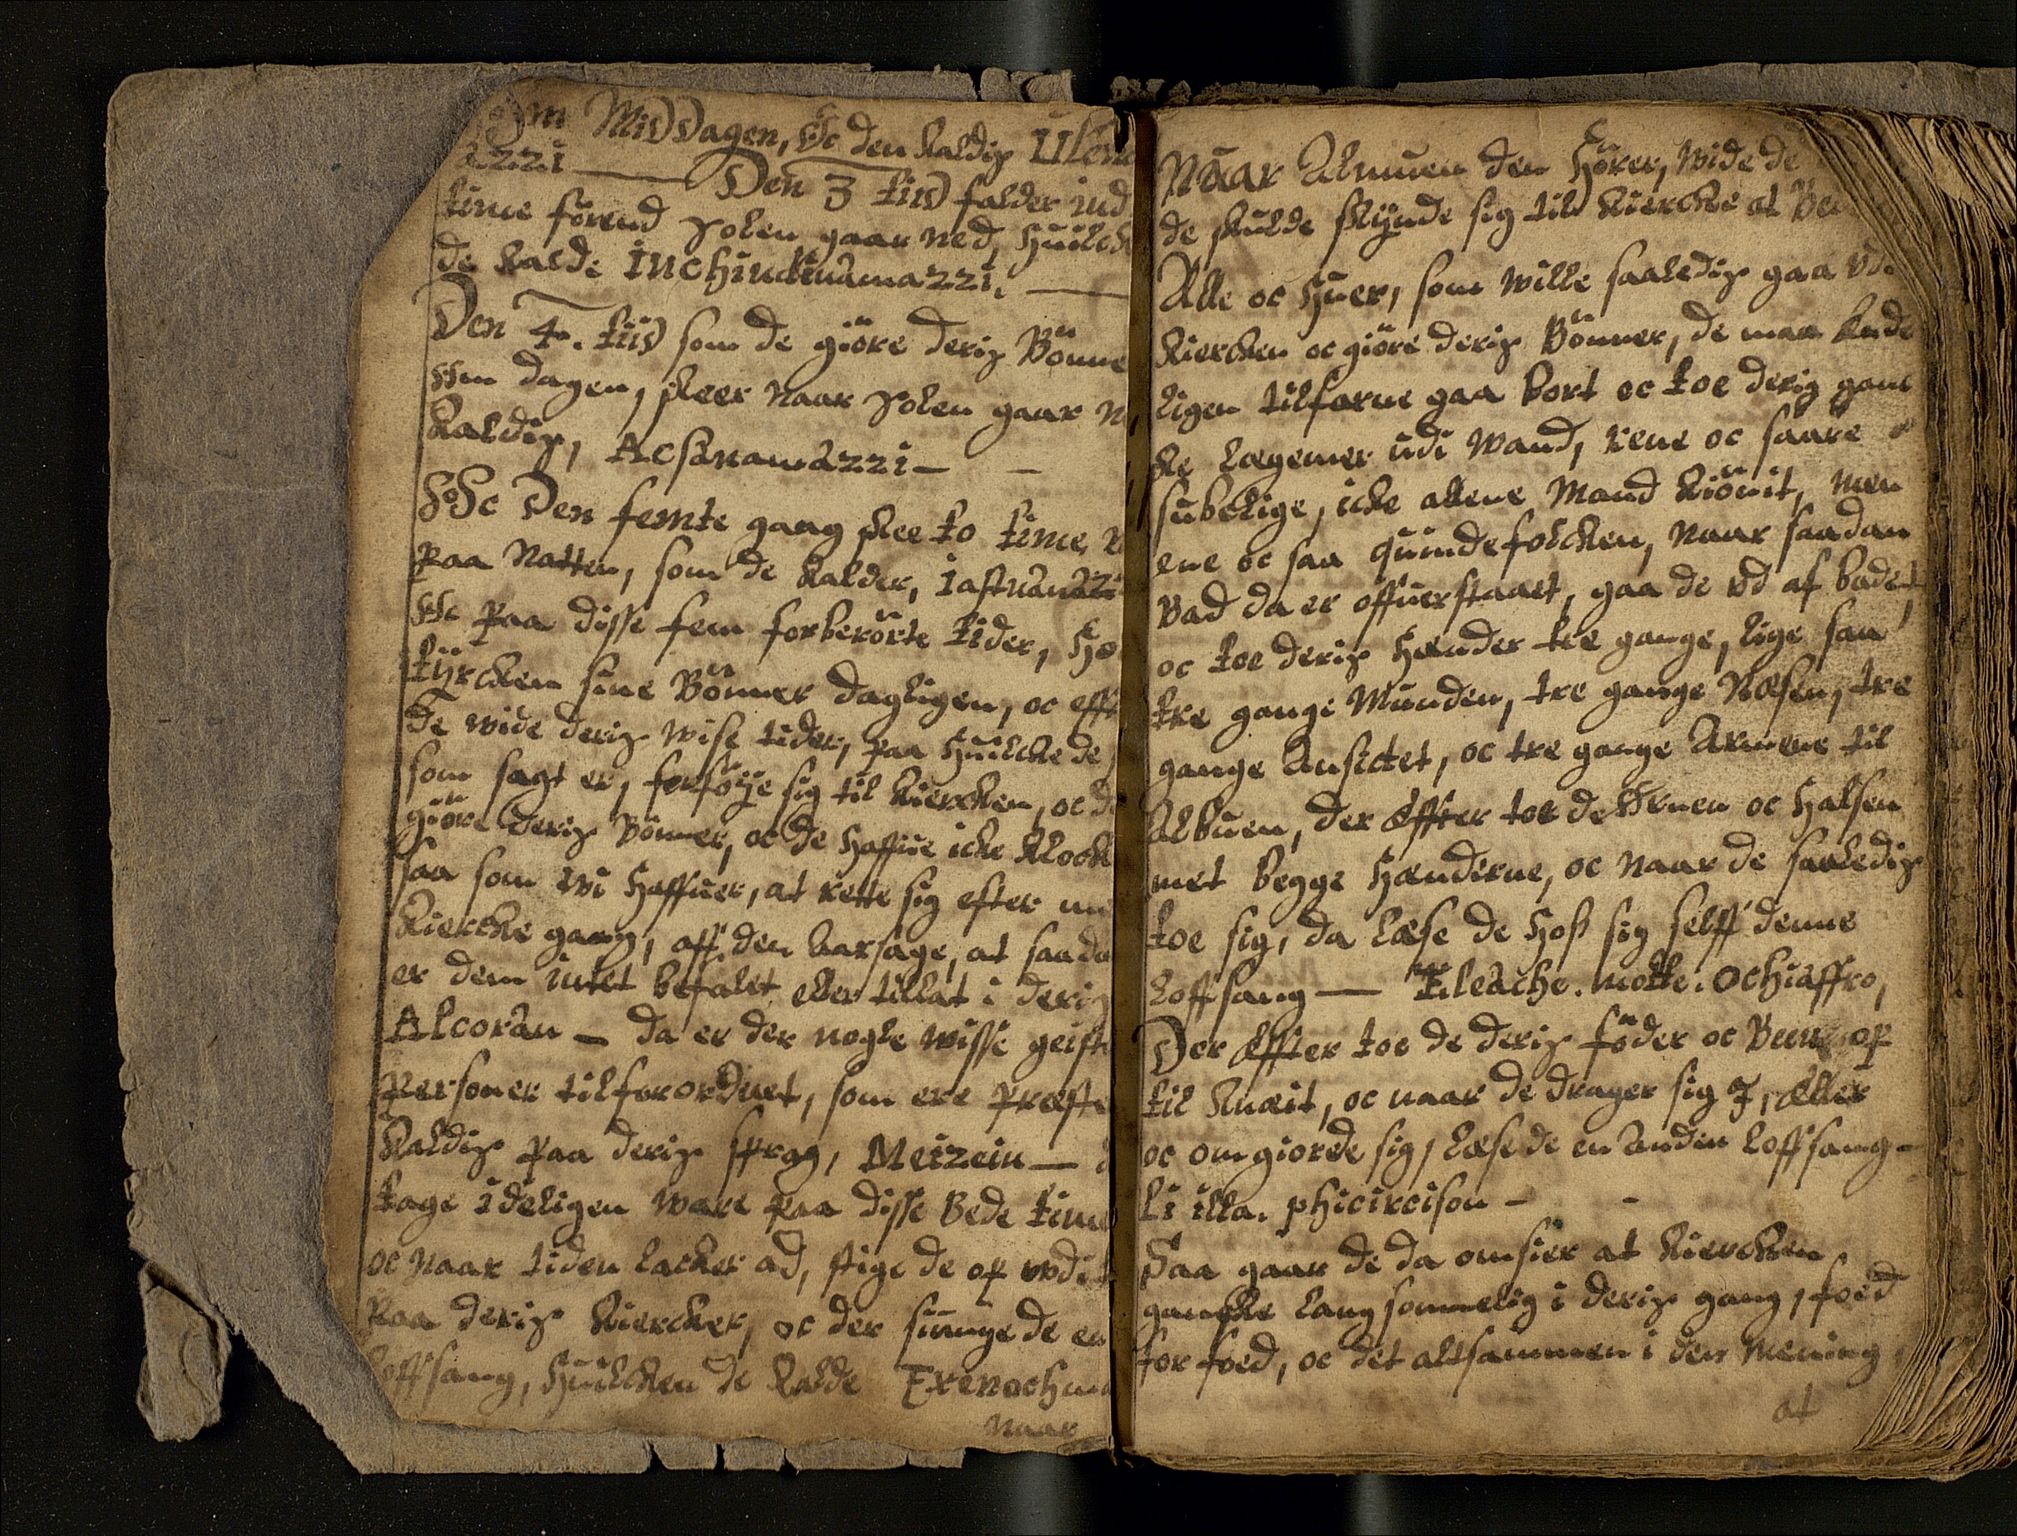 Middagen, Oc den kaldis
azzi — Den 3 tiid falder ind
time förend Solen gaar ned, huilcke
de kalde Inchindinamazzi. —
Den 4. tiid som de giöre deris Bönne
om dagen, skeer naar Solen gaar
kaldis, Acsanamazzi —
Oc Den femte gang skee to time
paa Natten, som de kalder,
Oc paa disse fem forberörte tider,
tyrcken sine Bönner dagligen, oc
de wide deris wise tider, paa huilcke de
som sagt er, forföye sig til kiercken, oc
giöre deris Bönner, oc de haffue icke klock
saa som wi haffuer, at rette sig efter
kiercke gang, aff den Aarsage, at saada
er dem intet befalet eller tillat i deris
Alcoran — da er der nogle wisse geist
Personer tilforordnet, som ere Præste
kaldis paa deris sprog, Meizein —
tage ideligen ware paa disse Bede time
oc naar tiden lacker ad, stige de op
paa deris kiercker, oc der siunge de en
loffsang, huilcken de kalde
naar
Naar Almuen den hörer, wide de
de skulde skynde sig til kiercke at
Alle oc huer, som wille saaledis gaa
kiercken oc giöre deris Bönner, de maa ende
ligen tilforne gaa bort oc toe deris gant
ske Legemer udi wand, rene oc saare
subtlige, icke allene Mand kiönit, men
ene oc saa quindefolcken, naar saadan
Bad da er offuerstaaet, gaa de ud af badet,
oc toe deris Hænder tre gange, lige saa
tre gange Munden, tre gange Næsen, tre
gange Ansictet, oc tre gange Armene til
Albuen, der Effter toe de Örnen oc halsen
met begge Hænderne, oc naar de saaledis
toe sig, da læse de hoss sig selff denne
loffsang — Tileache. motte. Ochiaffro,
Der Effter toe de deris föder oc Been op
til knæit, oc naar de drager sig
oc omgiorde sig, læse de en Anden loffsang —
Li illa. phicircison —
Saa gaar de da omsier at kiercken
gantske langsommelig i deris gang, foed
for foed, oc det altsammen i den Mening
at